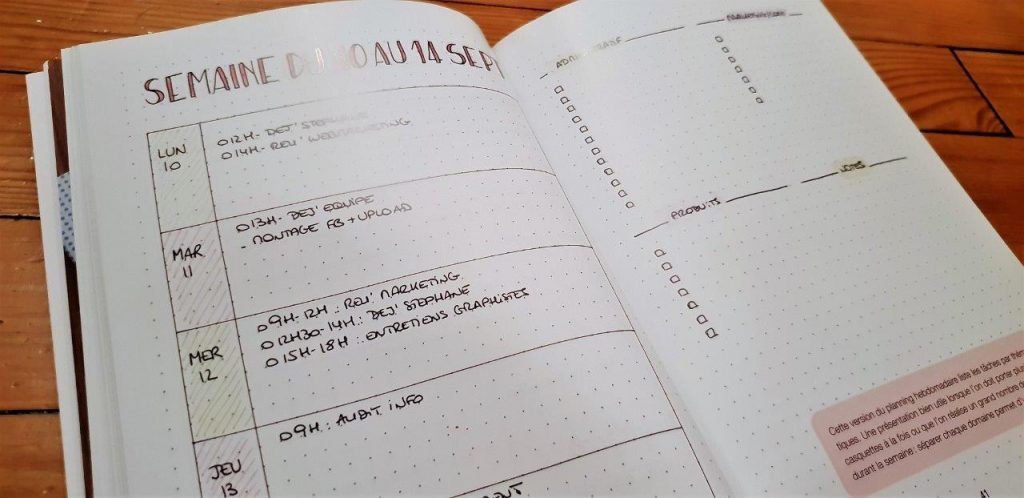 SEMAINE DU 10 AU 14 SEPT
LUN
10
12H- DEJ' STEPHANE
14H- REU' WEBMARKETING
MAR
11
13H- DEJ' EQUIPE
- MONTAGE FB + UPLOAD
MER
12
9H-12H : REU' MARKETING
12H30-14H : DEJ' STEPHANE
15H-18H : ENTRETIENS GRAPHISTES
JEU
13
9H : AUDIT INFO
ADMINISTRATIF
PRODUITS
NOTES
Cette version du planning hebdomadaire liste les tâches par thém
tiques. Une présentation bien utile lorsque l'on doit porter plus
casquettes à la fois ou que l'on réalise un grand nombre d
durant la semaine : séparer chaque domaine permet d
41